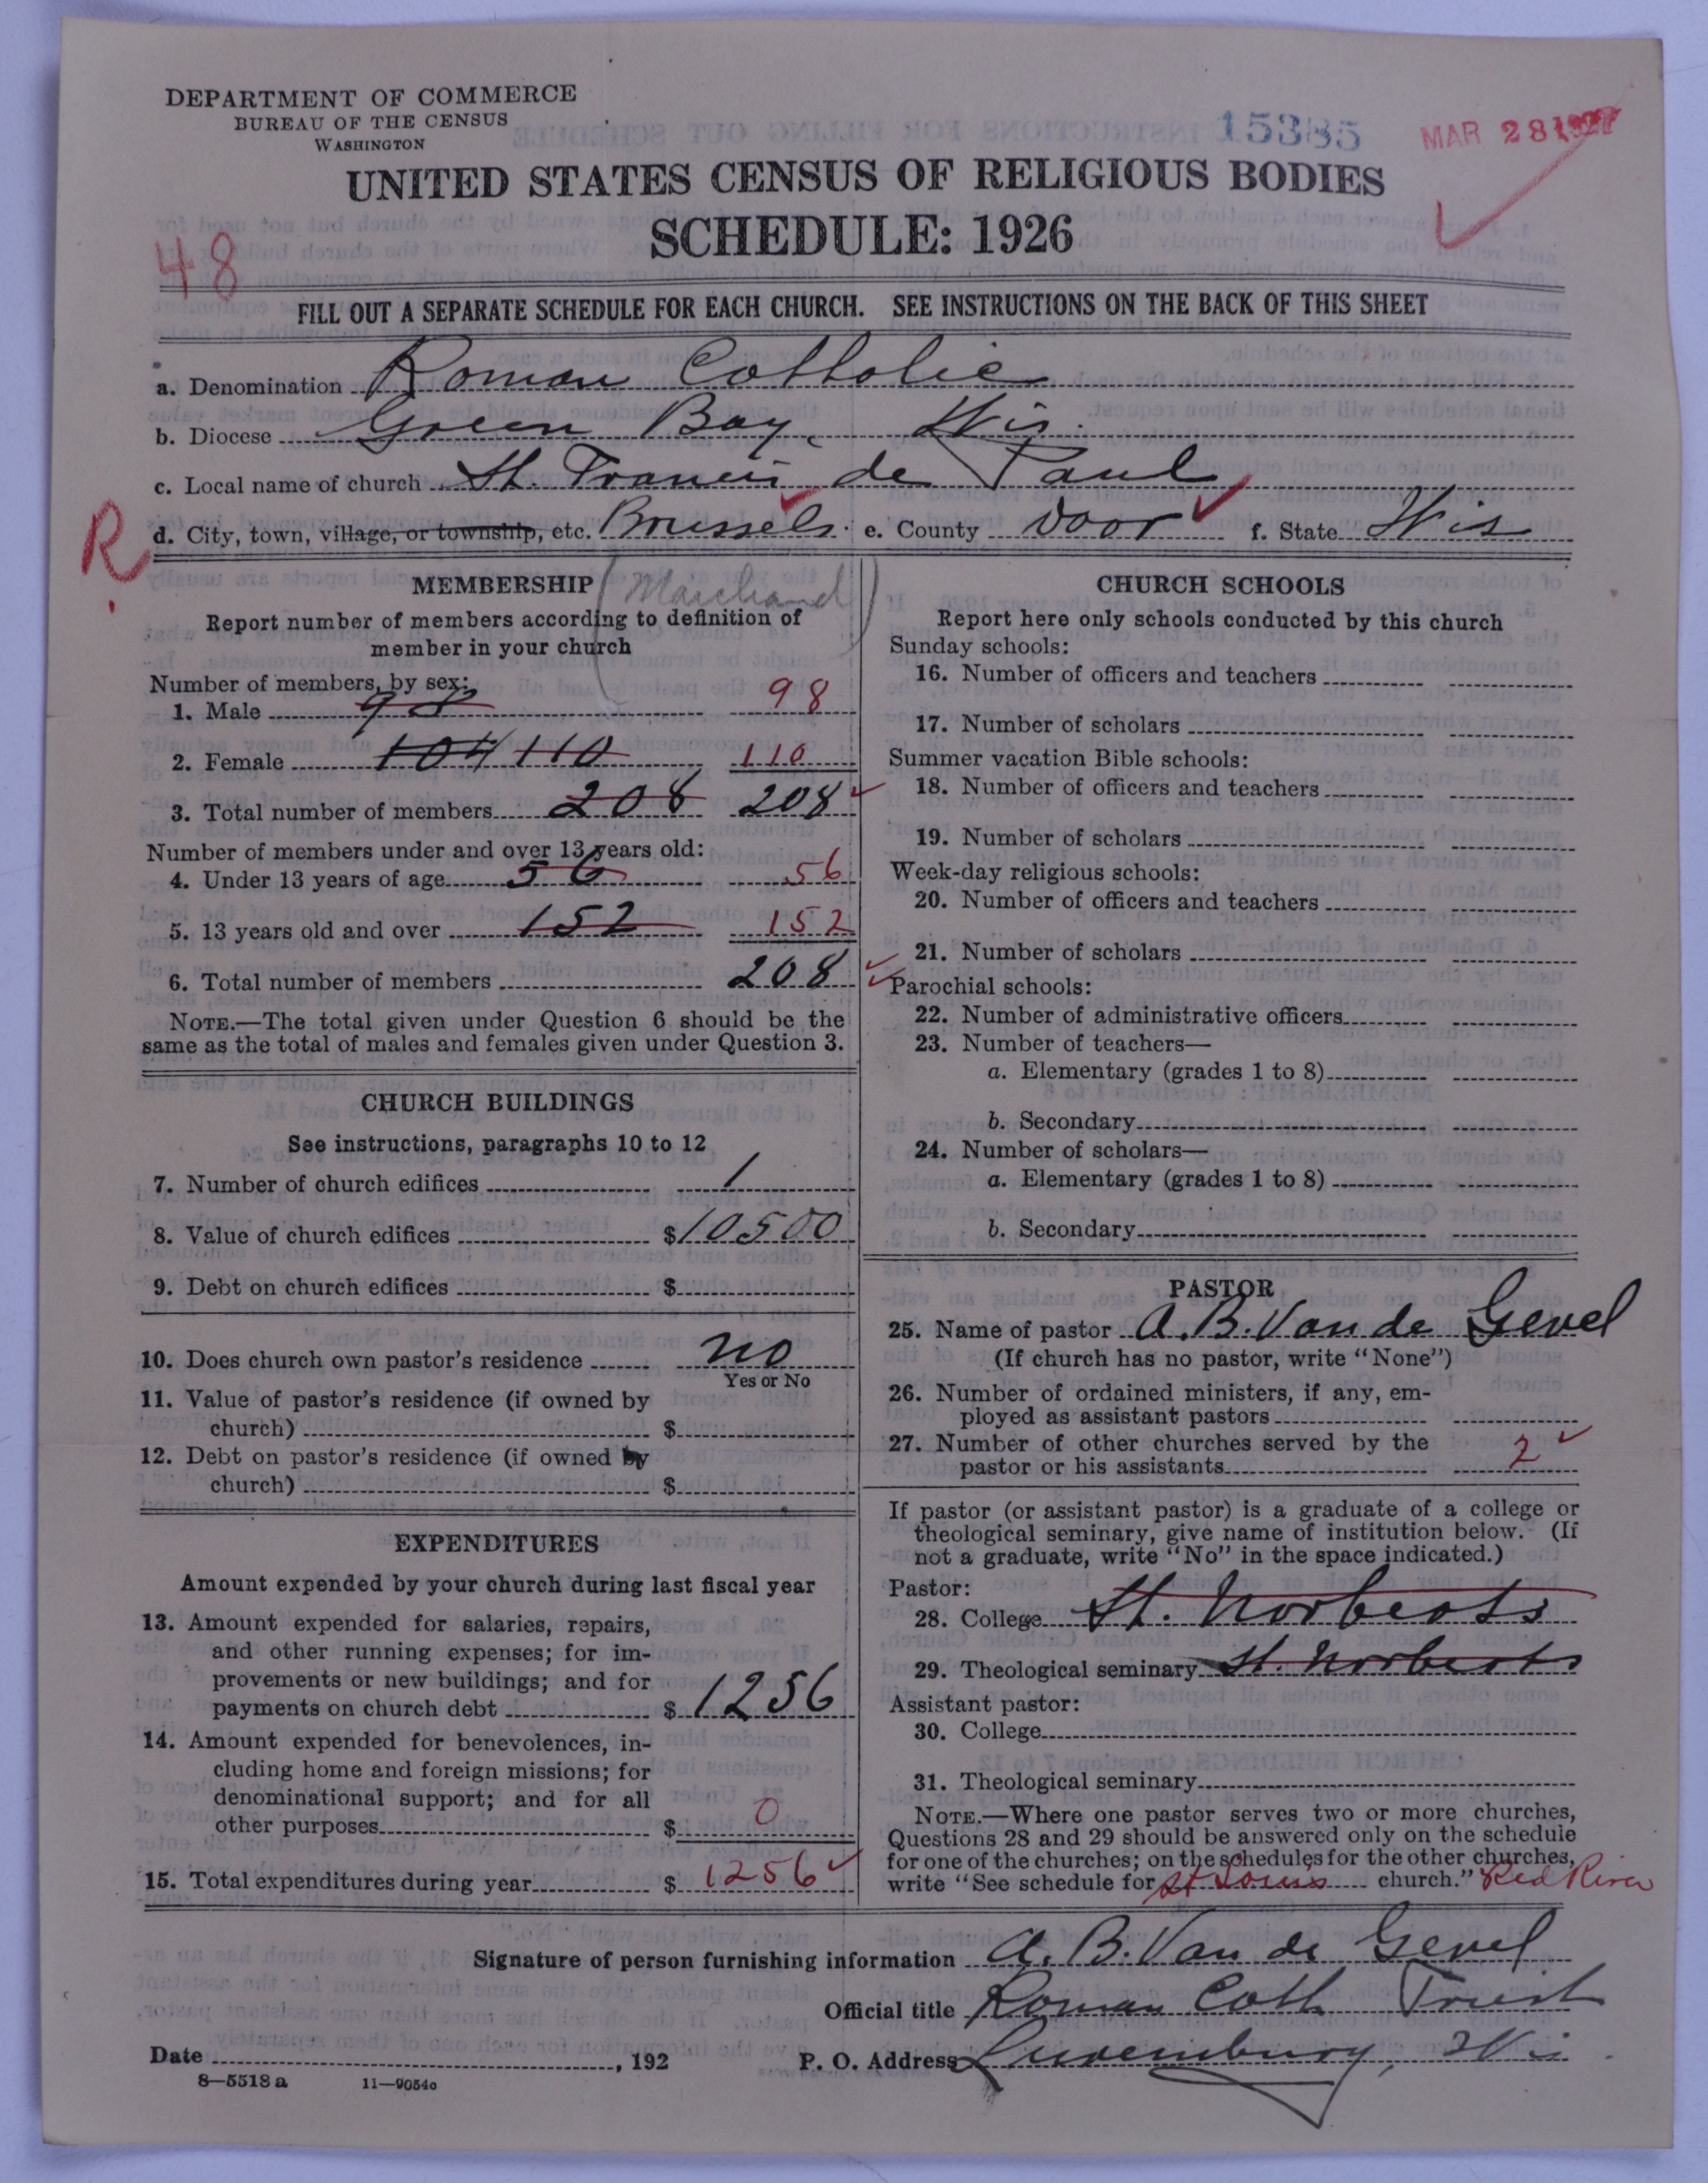 DEPARTMENT OF COMMERCE
BUREAU OF THE CENSUS
WASHINGTON
15385
MAR 28 1927
UNITED STATES CENSUS OF RELIGIOUS BODIES
SCHEDULE: 1926
48
FILL OUT A SEPARATE SCHEDULE FOR EACH CHURCH. SEE INSTRUCTIONS ON THE BACK OF THIS SHEET
a. Denomination Roman Catholic
b. Diocese Green Bay, Wis.
c. Local name of church St. Francis de Paul
R
d. City, town, village, or township, etc. Brussels. e. County Door f. State Wis
MEMBERSHIP (Marchand)
Report number of members according to definition of
member in your church
Number of members, by sex:
1. Male 98 98
2. Female 104 110 110
3. Total number of members 208 208
Number of members under and over 13 years old:
4. Under 13 years of age 56 56
5. 13 years old and over 152 152
6. Total number of members 208
NOTE.—The total given under Question 6 should be the
same as the total of males and females given under Question 3.
CHURCH BUILDINGS
See instructions, paragraphs 10 to 12
7. Number of church edifices 1
8. Value of church edifices $10500
9. Debt on church edifices $
10. Does church own pastor's residence no
Yes or No
11. Value of pastor's residence (if owned by
church) $
12. Debt on pastor's residence (if owned by
church) $
EXPENDITURES
Amount expended by your church during last fiscal year
13. Amount expended for salaries, repairs,
and other running expenses; for im-
provements or new buildings; and for
payments on church debt $ 1256
14. Amount expended for benevolences, in-
cluding home and foreign missions; for
denominational support; and for all
other purposes $ 0
15. Total expenditures during year $ 1256
CHURCH SCHOOLS
Report here only schools conducted by this church
Sunday schools:
16. Number of officers and teachers
17. Number of scholars
Summer vacation Bible schools:
18. Number of officers and teachers
19. Number of scholars
Week-day religious schools:
20. Number of officers and teachers
21. Number of scholars
Parochial schools:
22. Number of administrative officers
23. Number of teachers—
a. Elementary (grades 1 to 8)
b. Secondary
24. Number of scholars—
a. Elementary (grades 1 to 8)
b. Secondary
PASTOR
25. Name of pastor A. B. Van de Gevel
(If church has no pastor, write "None")
26. Number of ordained ministers, if any, em-
ployed as assistant pastors
27. Number of other churches served by the
pastor or his assistants 2
If pastor (or assistant pastor) is a graduate of a college or
theological seminary, give name of institution below. (If
not a graduate, write "No" in the space indicated.)
Pastor:
28. College St. Norberts
29. Theological seminary St. Norberts
Assistant pastor:
30. College
31. Theological seminary
NOTE.—Where one pastor serves two or more churches,
Questions 28 and 29 should be answered only on the schedule
for one of the churches; on the schedules for the other churches,
write "See schedule for St Louis church." Red River
Signature of person furnishing information A. B. Van de Gevel
Official title Roman Cath Priest
Date , 192 P. O. Address Luxemburg, Wis.
8—5518 a 11—9054c